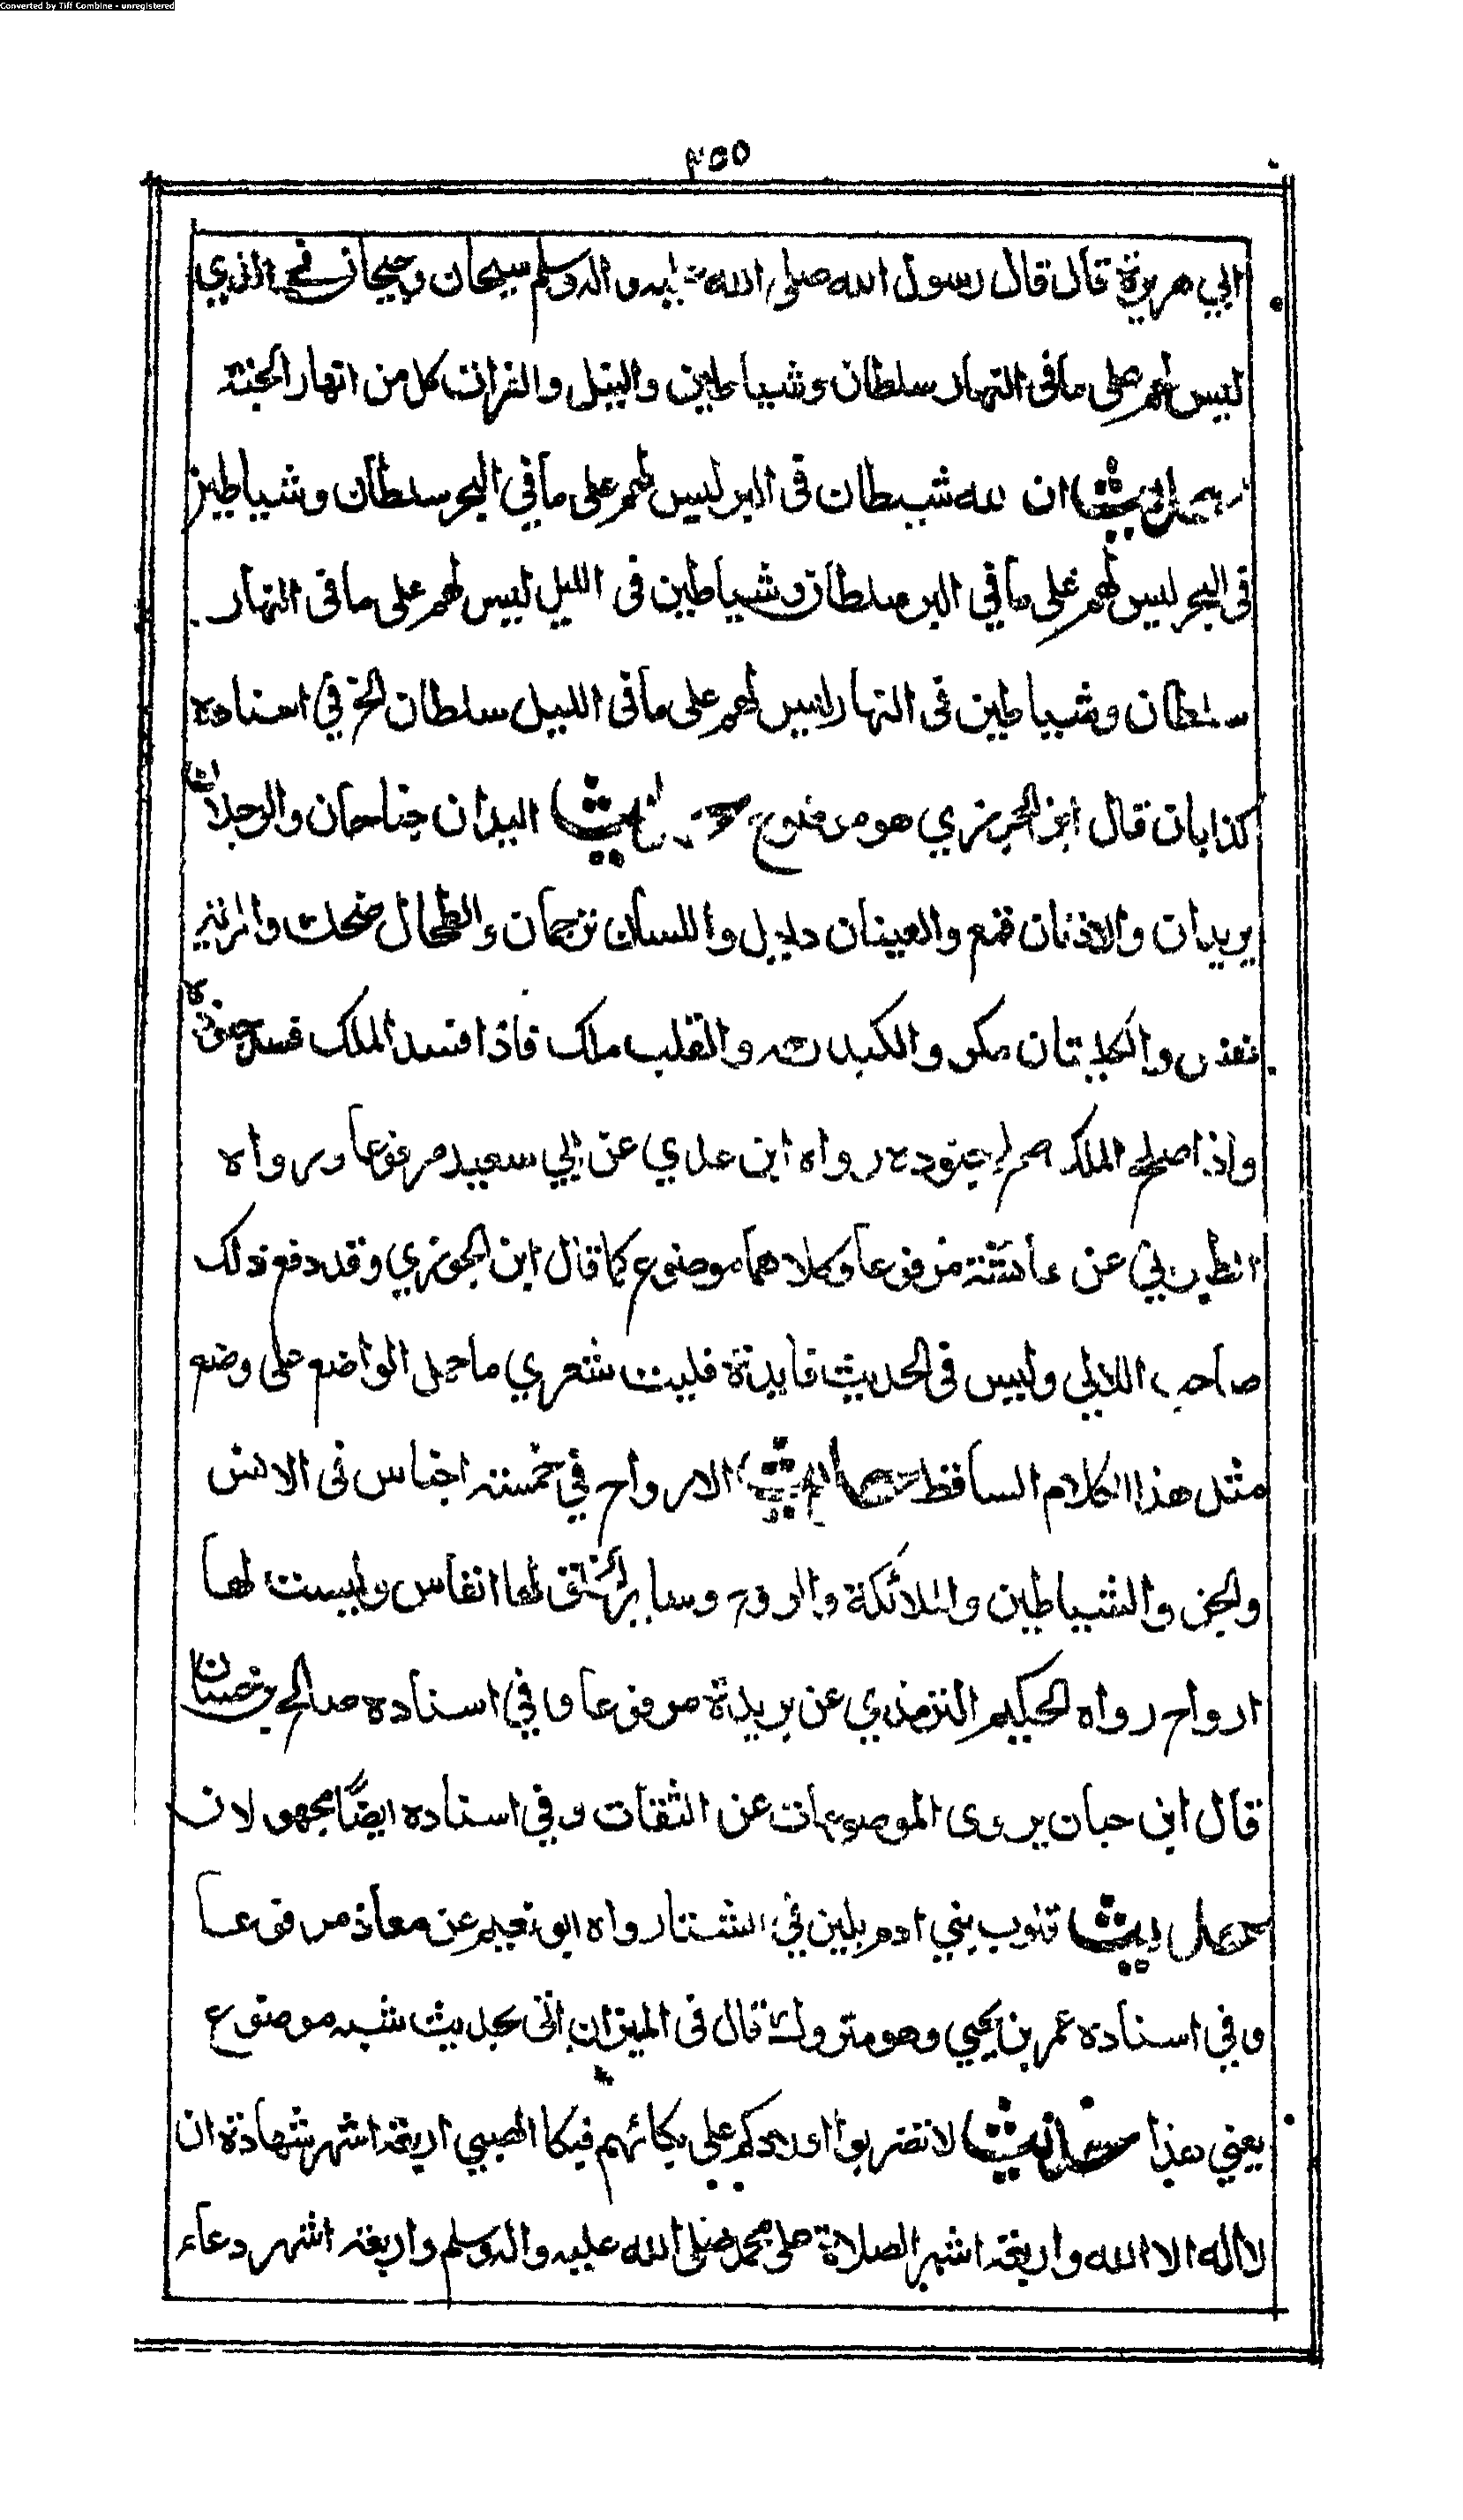 Converted by Tiff Combine - unregistered
٣٥٥
ابي هريرة قال قال رسول الله صلى الله عليه واله وسلم سيحان وجيحان الذي
ليس لهم على ما في النهار سلطان وشياطين والنيل والفرات كل من انهار الجنة
حديث ان لله شيطان في البر ليس لهم على ما في البحر سلطان وشياطين
في البحر ليس لهم على ما في البر سلطان وشياطين في الليل ليس لهم على ما في النهار
سلطان وشياطين في النهار ليس لهم على ما في الليل سلطان الخ في اسناده
كذابان قال ابن الجوزي هو موضوع حديث اليدان جناحان والرجلان
بريدان والاذنان قمع والعينان دليل واللسان ترجمان والطحال ضحك والرئة
نفس والكليتان مكر والكبد والقلب ملك فاذا فسد الملك فسد جنوده
واذا صلح الملك صلح جنوده رواه ابن عدي عن ابي سعيد مرفوعا ورواه
الطبراني عن عائشة مرفوعا وكلاهما موضوع كما قال ابن الجوزي وقد دفع ذلك
صاحب اللالي وليس في الحديث فايدة فليت شعري ما حمل الواضع على وضع
مثل هذا الكلام الساقط حديث الارواح في خمسة اجناس في الانس
والجن والشياطين والملائكة والروح وساير الخلق لها انفاس وليست لها
ارواح رواه الحكيم الترمذي عن بريدة مرفوعا وفي اسناده صالح بن حسان
قال ابن حبان يروى الموضوعات عن الثقات وفي اسناده ايضًا مجهولان
حديث قلوب بني ادم بلين في الشتا رواه ابو نعيم عن معاذ مرفوعا
وفي اسناده عمر بن يحيي وهو متروك قال في الميزان اتى بحديث شبه موضوع
يعني هذا حديث لا تضربوا اولادكم علي بكائهم فبكا الصبي اربعة اشهر شهادة ان
لا اله الا الله واربعة اشهر الصلاة على محمد صلى الله عليه واله وسلم واربعة اشهر دعاء